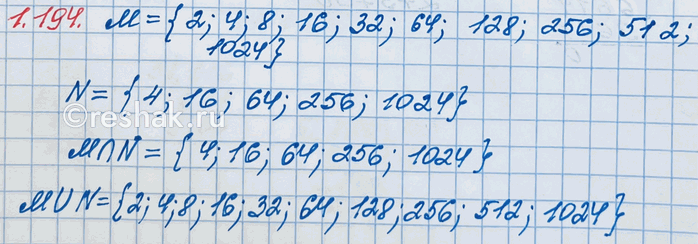 1.194. M = {2; 4; 8; 16; 32; 64; 128; 256; 512;
1024}
N = {4; 16; 64; 256; 1024}
©reshak.ru
M∩N = {4; 16; 64; 256; 1024}
M∪N = {2; 4; 8; 16; 32; 64; 128; 256; 512; 1024}